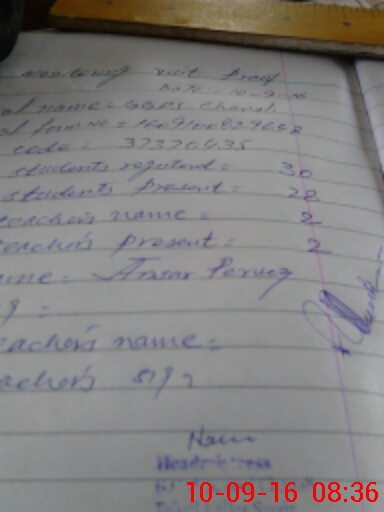 monitoring visit Proof
Date = 10-9-16
name = GGPS Chanal
form no =
code = 37370435
students registered = 30
students present = 22
teacher's name = 2
teacher's present = 2
ame = Ansar Pervez
teacher's name =
acher's sign
Headmistress
10-09-16 08:36